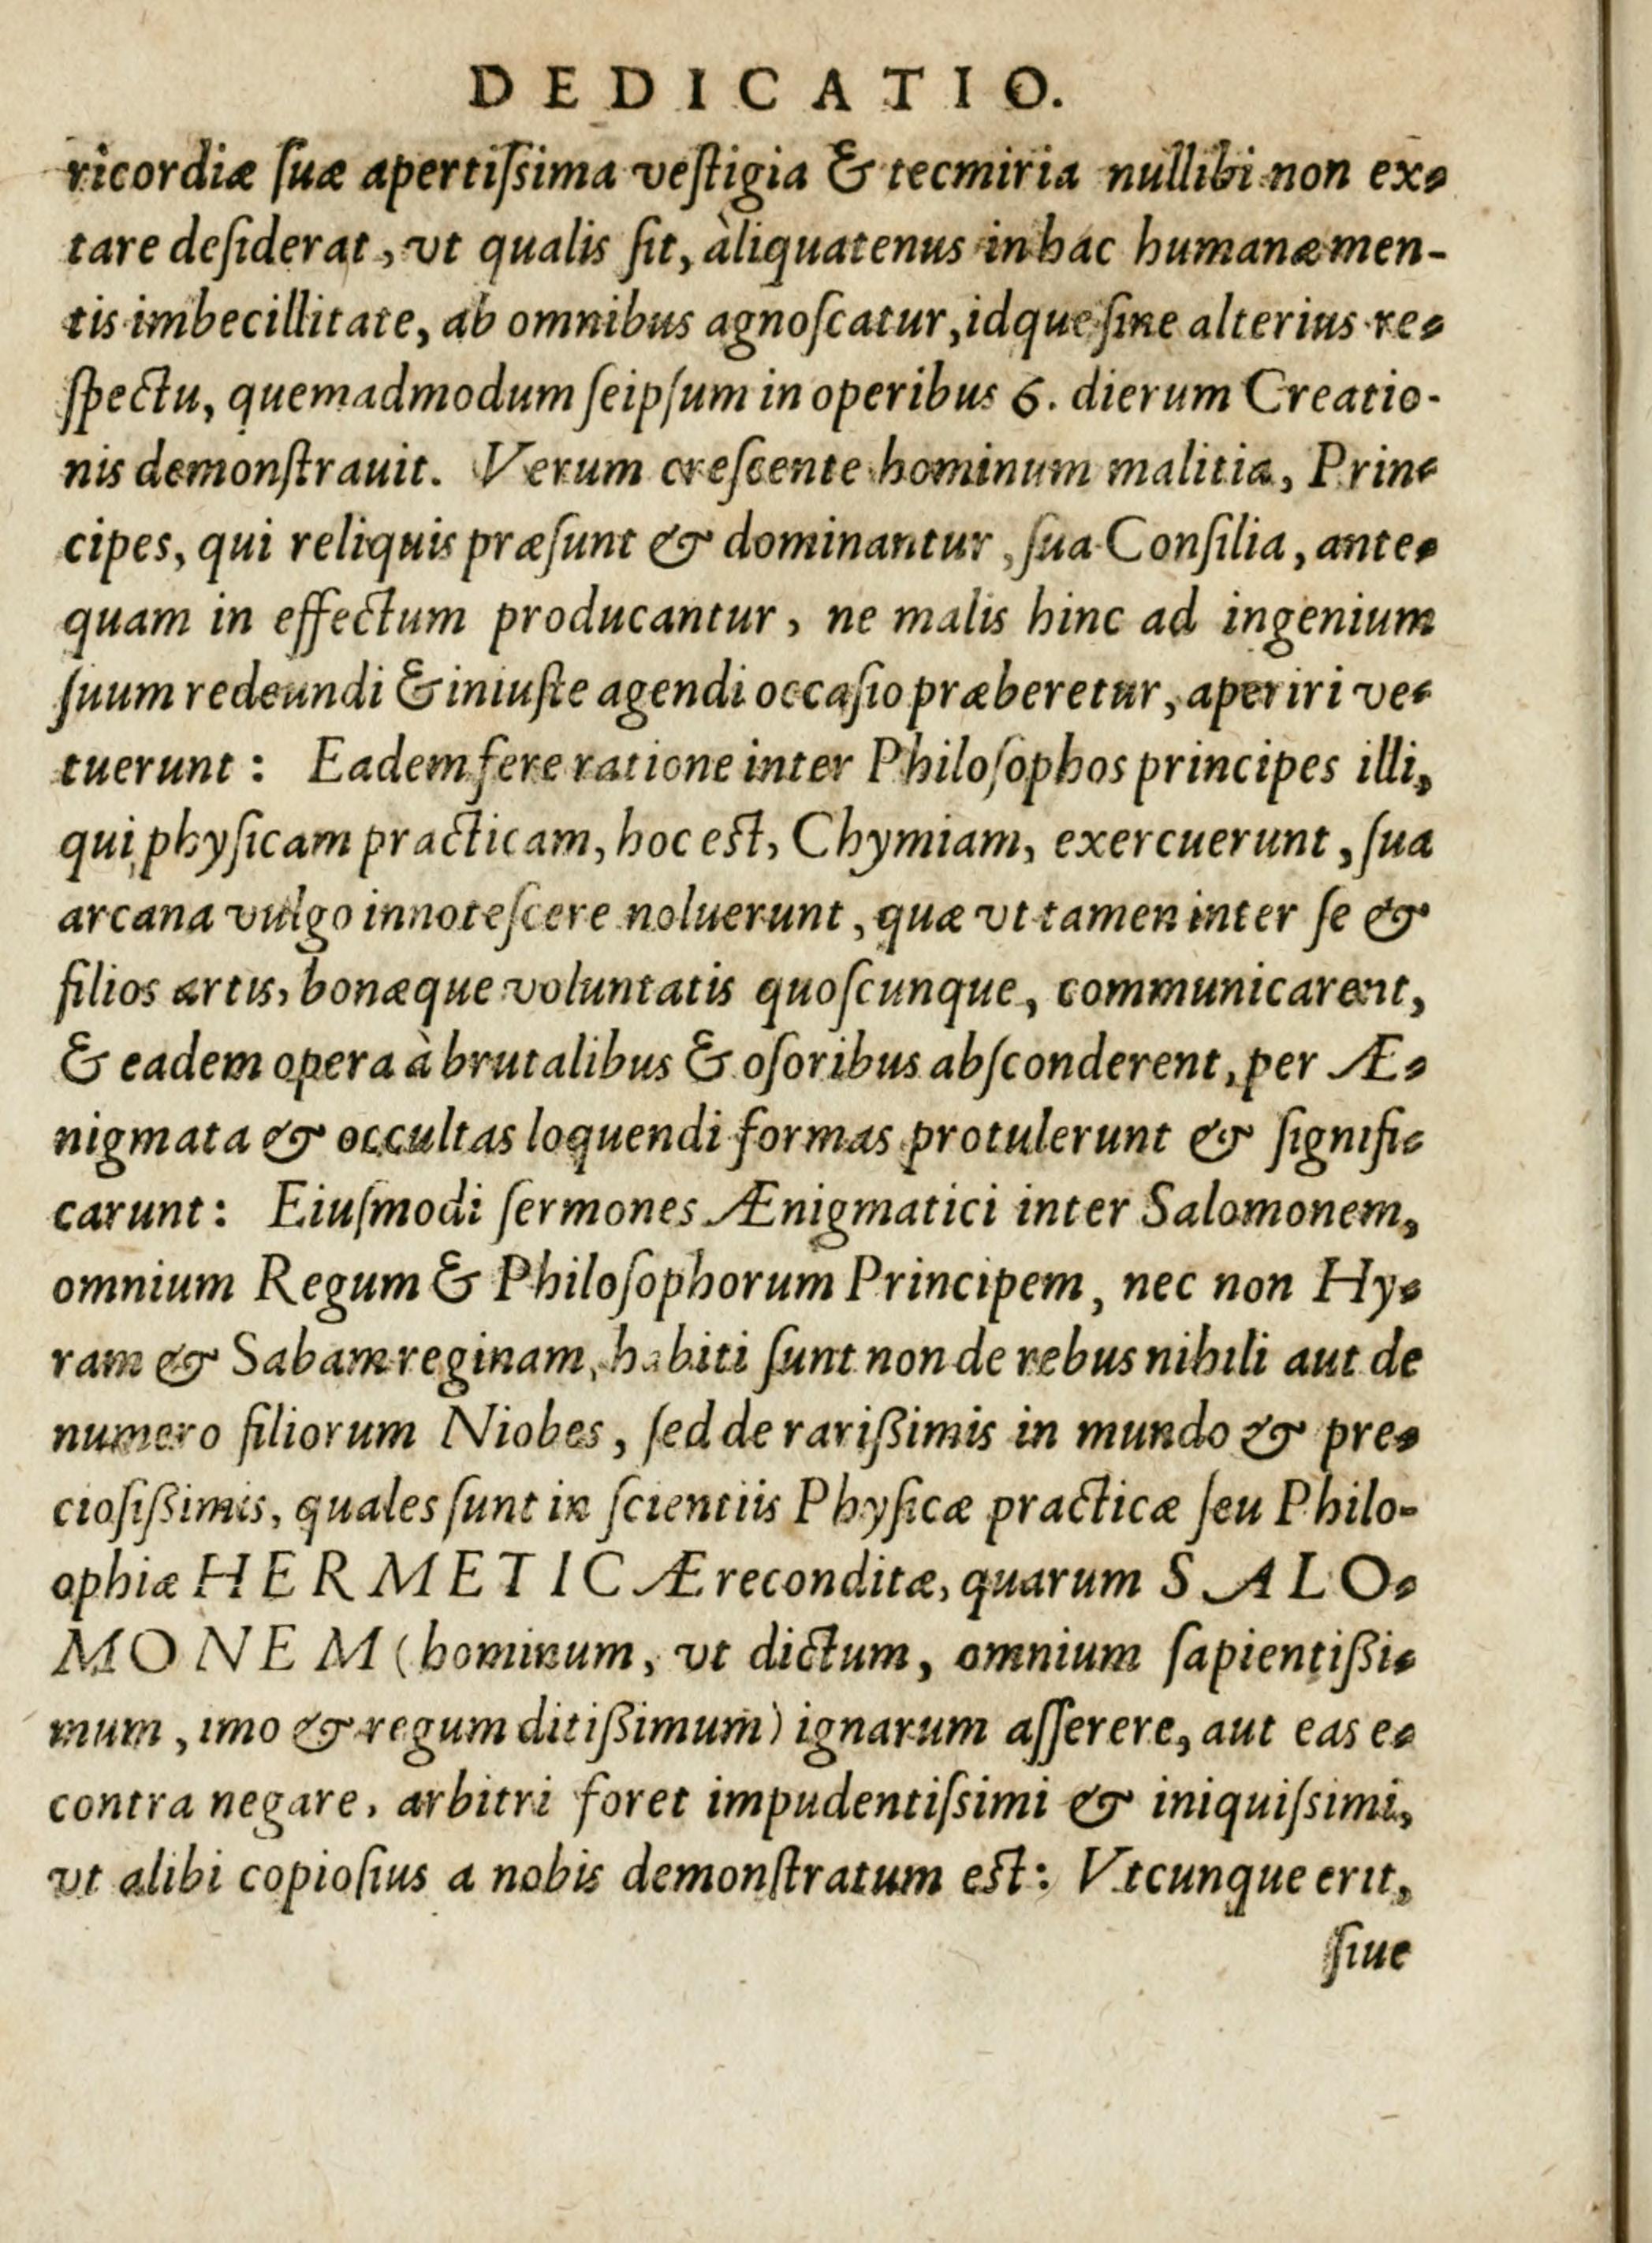 DEDICATIO.
ricordiæ ſuæ apertiſsima veſtigia & tecmiria nullibi non ex-
tare deſiderat, vt qualis ſit, àliquatenus in hac humanæ men-
tis imbecillitate, ab omnibus agnoſcatur, idque ſine alterius re-
ſpectu, quemadmodum ſeipſum in operibus 6. dierum Creatio-
nis demonſtrauit. Verum creſcente hominum malitia, Prin-
cipes, qui reliquis præſunt & dominantur, ſua Conſilia, ante-
quam in effectum producantur, ne malis hinc ad ingenium
ſuum redeundi & iniuſte agendi occaſio præberetur, aperiri ve-
tuerunt: Eadem fere ratione inter Philoſophos principes illi,
qui phyſicam practicam, hoc eſt, Chymiam, exercuerunt, ſua
arcana vulgo innoteſcere noluerunt, quæ vt tamen inter ſe &
filios artis, bonæque voluntatis quoſcunque, communicarent,
& eadem opera à brutalibus & oſoribus abſconderent, per Æ-
nigmata & occultas loquendi formas protulerunt & ſignifi-
carunt: Eiuſmodi ſermones Ænigmatici inter Salomonem,
omnium Regum & Philoſophorum Principem, nec non Hy-
ram & Sabam reginam, habiti ſunt non de rebus nihili aut de
numero filiorum Niobes, ſed de rarißimis in mundo & pre-
cioſißimis, quales ſunt in ſcientiis Phyſicæ practicæ ſeu Philo-
ophiæ HERMETICÆ reconditæ, quarum SALO-
MONEM (hominum, vt dictum, omnium ſapientißi-
mum, imo & regum ditißimum) ignarum aſſerere, aut eas e-
contra negare, arbitri foret impudentiſsimi & iniquiſsimi,
vt alibi copioſius a nobis demonſtratum eſt: Vtcunque erit,
ſiue